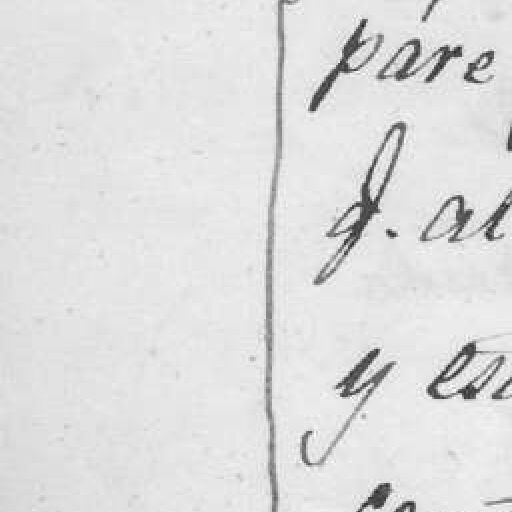 pare
q. al
y es